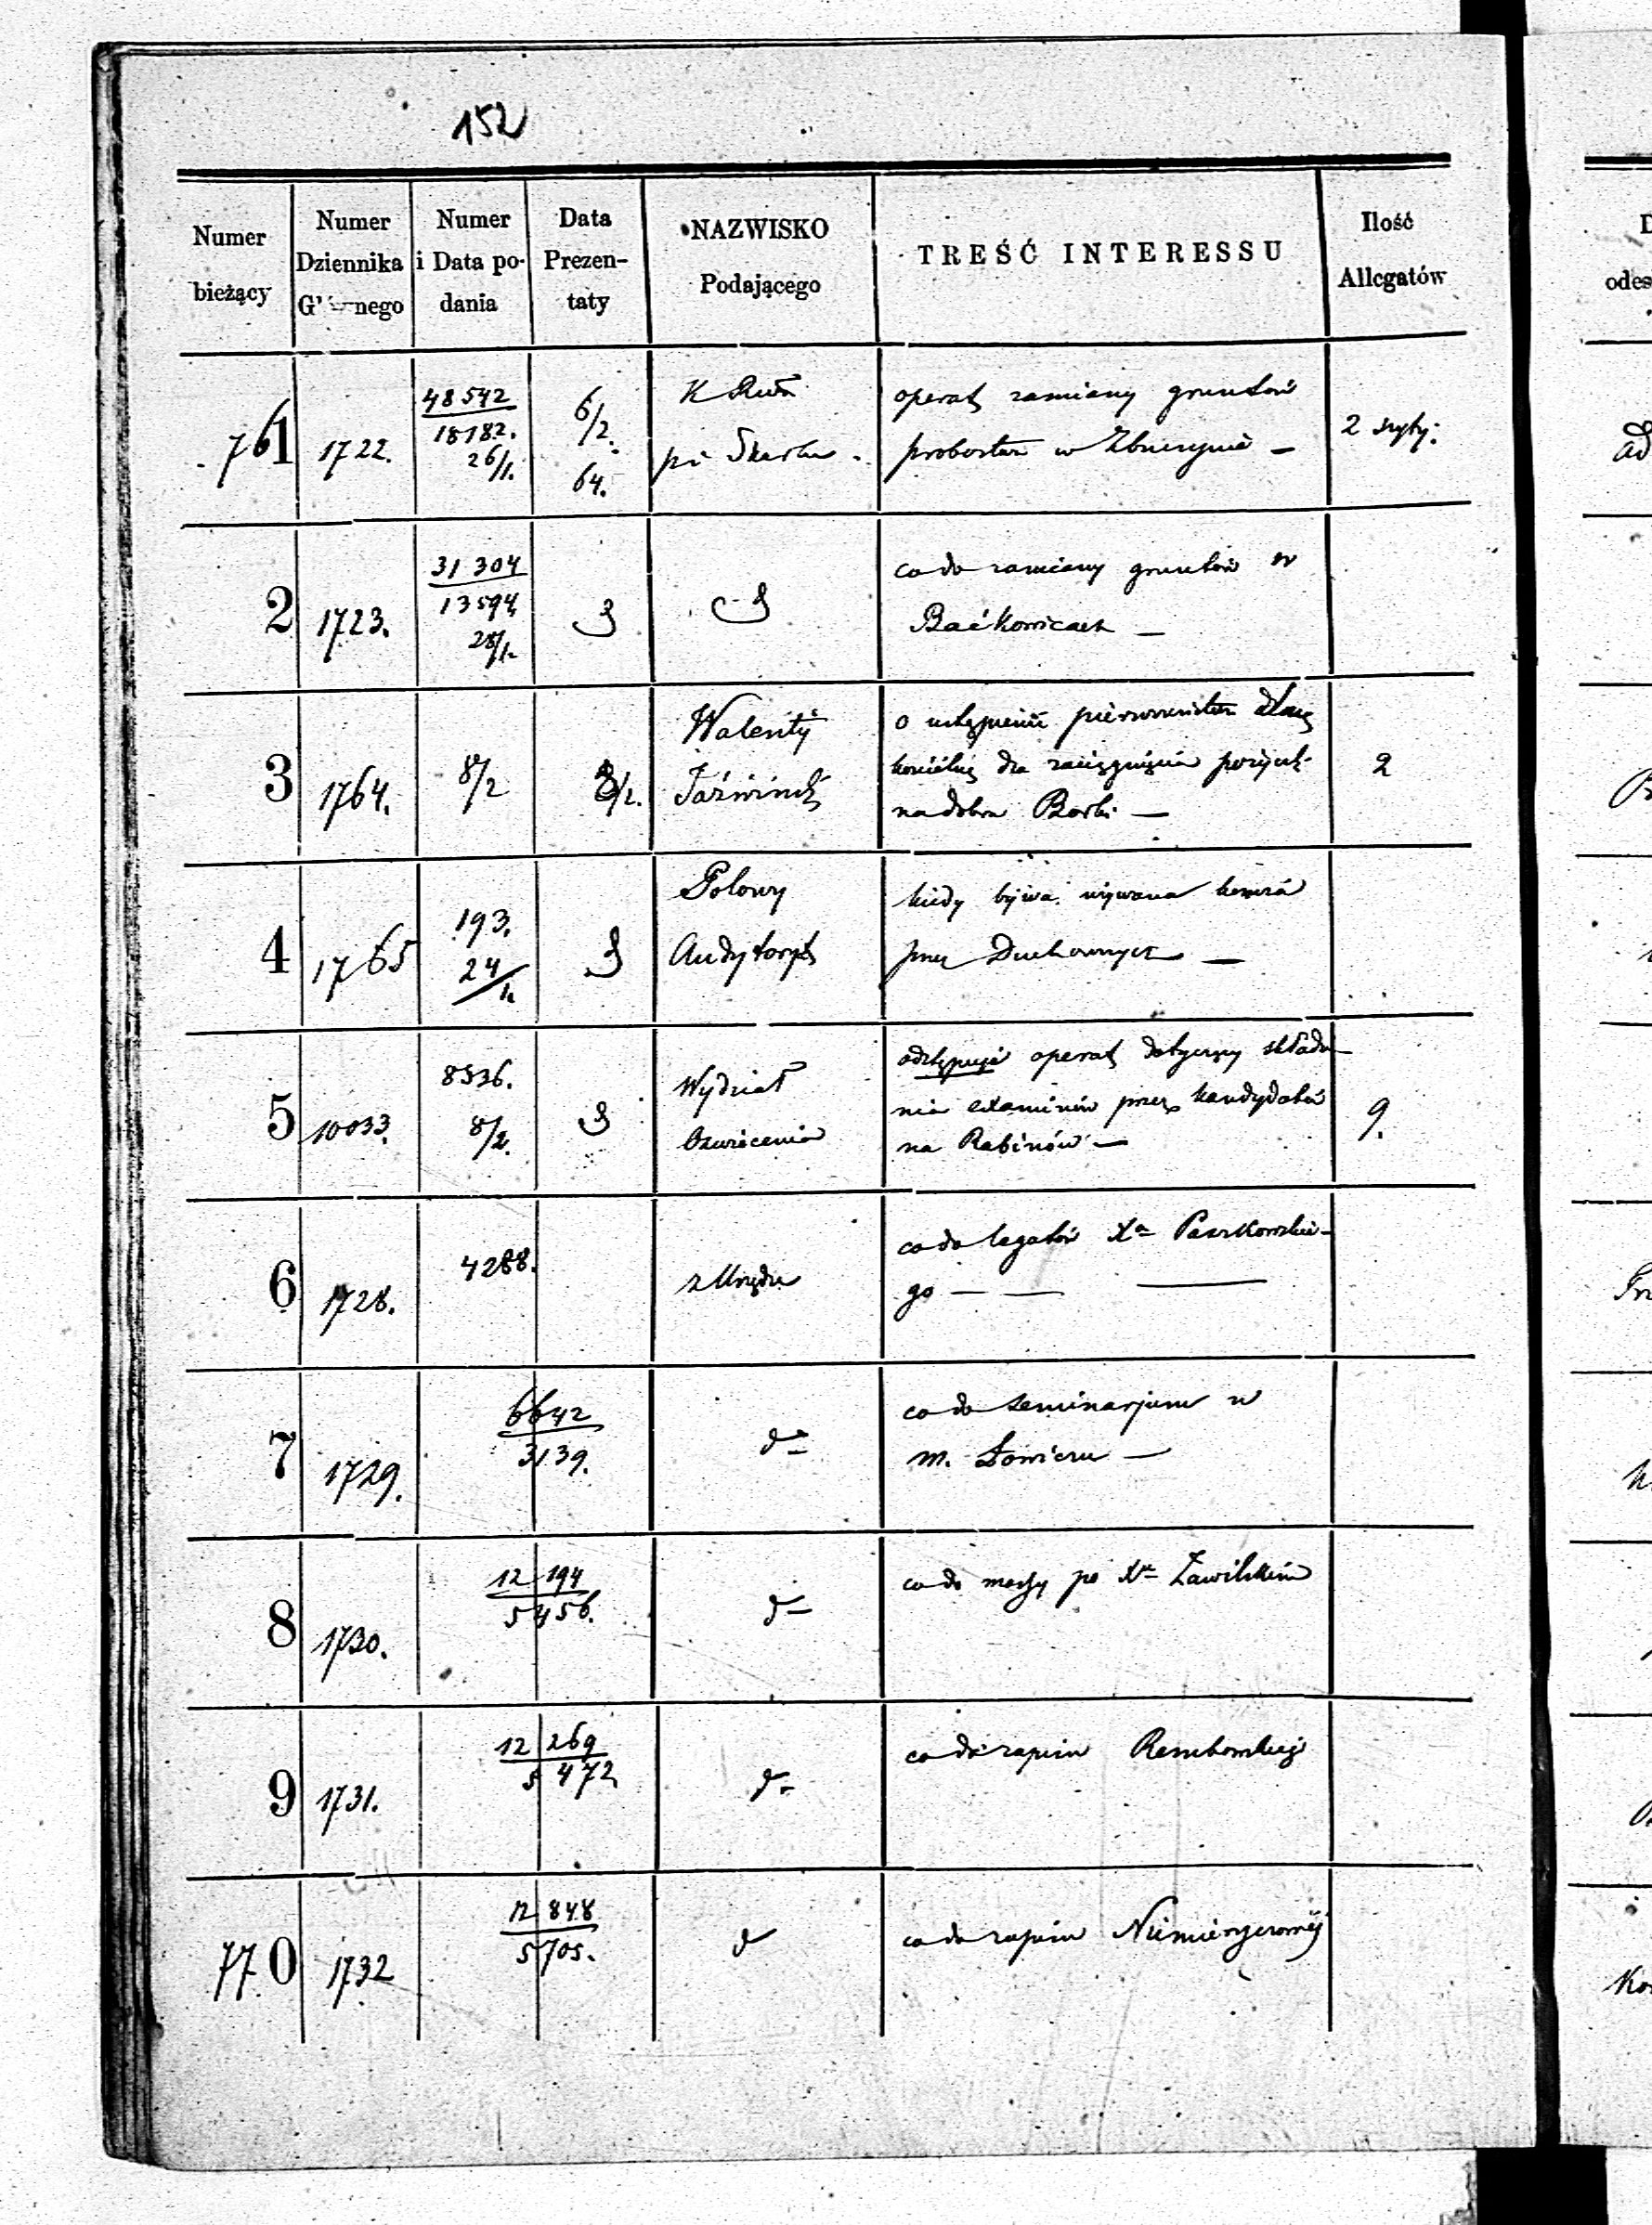 152
Numer bieżący
Numer Dziennika G nego
Numer i Data podania
Data Prezentaty
NAZWISKO Podającego
TREŚĆ INTERESSU
Ilość Allegatów
761
1722.
48542
18182.
26/1.
6/2.
64.
operat zamiany gruntów
w
2
2
1723.
31304
13594
28/1.
co do zamiany gruntów w
Baćkowicach —
3
1764.
8/2
8/2.
Walenty
o ustąpienie pierwszeństwa
dla zaciągnięcia
na dobra Borki —
2
4
1765
193.
24/1.
Polowy
Audytoryat
kiedy bywa używana
przez Duchownych —
5
10033.
8536.
8/2.
Wydział
Oświecenia
odstępuje operat dotyczący składa
nia examinów przez kandydatów
na Rabinów —
9.
6
1728.
4288.
z Urzędu
co do legatów Xa Paszkowskie-
go — —
7
1729.
6642
3139.
do
co do seminarjum w
m. Łowiczu —
8
1730.
12194
5456.
do
co do massy po Xu Zawilskim
9
1731.
12269
5472
do
co do zapisu Rembowskiej
770
1732
12848
5705.
do
co do zapisu